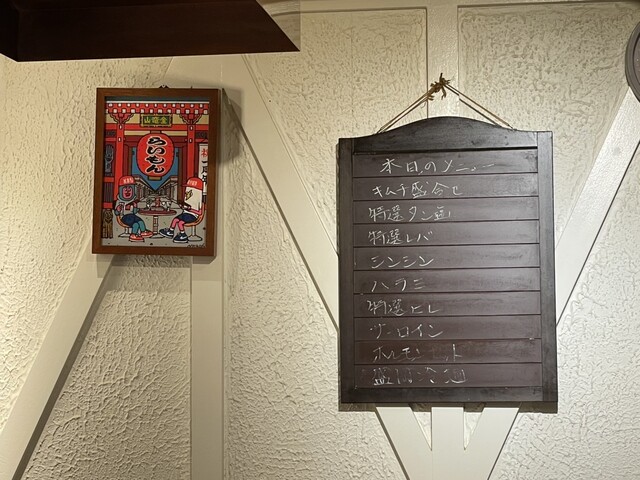 金龍山
らいもん
本日のメニュー
キムチ盛合せ
特選タン塩
特選レバ
シンシン
ハラミ
特選ヒレ
サーロイン
ホルモン
盛岡冷麺